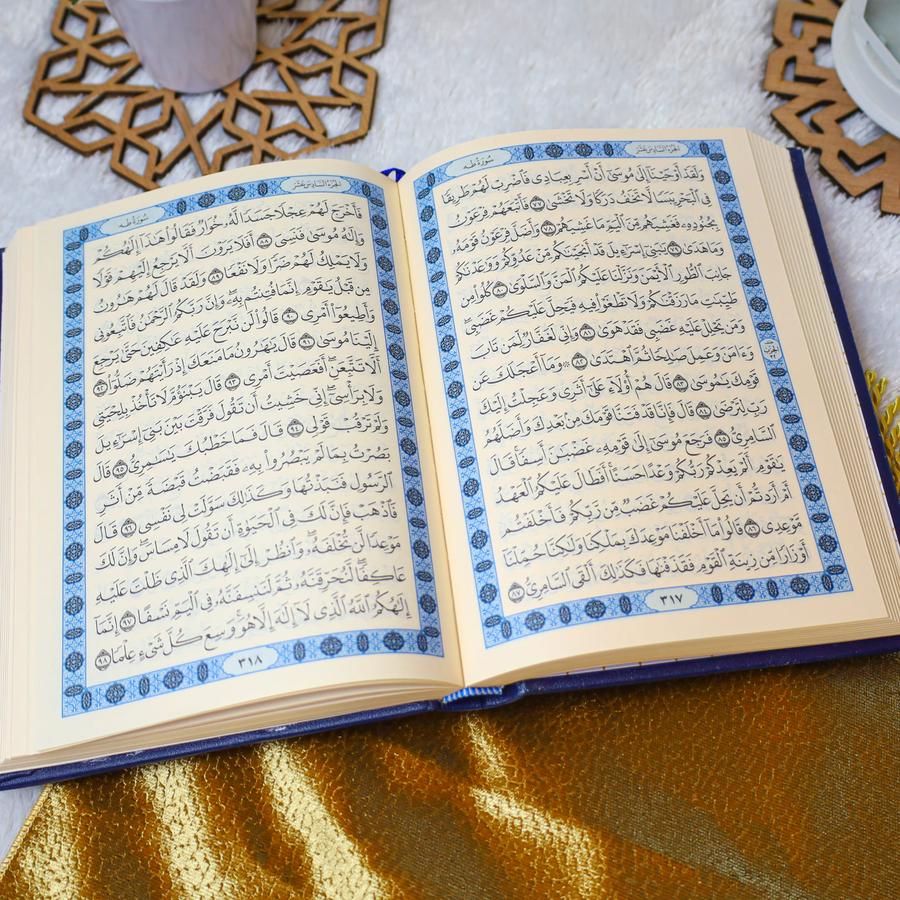 سورة طه
الجزء السادس عشر
وَلَقَدْ أَوْحَيْنَا إِلَىٰ مُوسَىٰ أَنْ أَسْرِ بِعِبَادِى فَاضْرِبْ لَهُمْ طَرِيقًا
فِى الْبَحْرِ يَبَسًا لَّا تَخَٰفُ دَرَكًا وَلَا تَخْشَىٰ ٧٧ فَأَتْبَعَهُمْ فِرْعَوْنُ
بِجُنُودِهِۦ فَغَشِيَهُم مِّنَ الْيَمِّ مَا غَشِيَهُمْ ٧٨ وَأَضَلَّ فِرْعَوْنُ قَوْمَهُۥ
وَمَا هَدَىٰ ٧٩ يَٰبَنِىٓ إِسْرَٰٓءِيلَ قَدْ أَنجَيْنَٰكُم مِّنْ عَدُوِّكُمْ وَوَٰعَدْنَٰكُمْ
جَانِبَ الطُّورِ الْأَيْمَنَ وَنَزَّلْنَا عَلَيْكُمُ الْمَنَّ وَالسَّلْوَىٰ ٨٠ كُلُوا مِن
طَيِّبَٰتِ مَا رَزَقْنَٰكُمْ وَلَا تَطْغَوْا فِيهِ فَيَحِلَّ عَلَيْكُمْ غَضَبِى
وَمَن يَحْلِلْ عَلَيْهِ غَضَبِى فَقَدْ هَوَىٰ ٨١ وَإِنِّى لَغَفَّارٌ لِّمَن تَابَ
وَءَامَنَ وَعَمِلَ صَٰلِحًا ثُمَّ اهْتَدَىٰ ٨٢ ۞ وَمَآ أَعْجَلَكَ عَن
قَوْمِكَ يَٰمُوسَىٰ ٨٣ قَالَ هُمْ أُولَآءِ عَلَىٰٓ أَثَرِى وَعَجِلْتُ إِلَيْكَ
رَبِّ لِتَرْضَىٰ ٨٤ قَالَ فَإِنَّا قَدْ فَتَنَّا قَوْمَكَ مِنۢ بَعْدِكَ وَأَضَلَّهُمُ
السَّامِرِىُّ ٨٥ فَرَجَعَ مُوسَىٰٓ إِلَىٰ قَوْمِهِۦ غَضْبَٰنَ أَسِفًا قَالَ
يَٰقَوْمِ أَلَمْ يَعِدْكُمْ رَبُّكُمْ وَعْدًا حَسَنًا أَفَطَالَ عَلَيْكُمُ الْعَهْدُ
أَمْ أَرَدتُّمْ أَن يَحِلَّ عَلَيْكُمْ غَضَبٌ مِّن رَّبِّكُمْ فَأَخْلَفْتُم
مَّوْعِدِى ٨٦ قَالُوا مَآ أَخْلَفْنَا مَوْعِدَكَ بِمَلْكِنَا وَلَٰكِنَّا حُمِّلْنَآ
أَوْزَارًا مِّن زِينَةِ الْقَوْمِ فَقَذَفْنَٰهَا فَكَذَٰلِكَ أَلْقَى السَّامِرِىُّ ٨٧
٣١٧
سورة طه
الجزء السادس عشر
فَأَخْرَجَ لَهُمْ عِجْلًا جَسَدًا لَّهُۥ خُوَارٌ فَقَالُوا هَٰذَآ إِلَٰهُكُمْ
وَإِلَٰهُ مُوسَىٰ فَنَسِىَ ٨٨ أَفَلَا يَرَوْنَ أَلَّا يَرْجِعُ إِلَيْهِمْ قَوْلًا
وَلَا يَمْلِكُ لَهُمْ ضَرًّا وَلَا نَفْعًا ٨٩ وَلَقَدْ قَالَ لَهُمْ هَٰرُونُ
مِن قَبْلُ يَٰقَوْمِ إِنَّمَا فُتِنتُم بِهِۦ وَإِنَّ رَبَّكُمُ الرَّحْمَٰنُ فَاتَّبِعُونِى
وَأَطِيعُوٓا أَمْرِى ٩٠ قَالُوا لَن نَّبْرَحَ عَلَيْهِ عَٰكِفِينَ حَتَّىٰ يَرْجِعَ
إِلَيْنَا مُوسَىٰ ٩١ قَالَ يَٰهَٰرُونُ مَا مَنَعَكَ إِذْ رَأَيْتَهُمْ ضَلُّوٓا ٩٢
أَلَّا تَتَّبِعَنِ أَفَعَصَيْتَ أَمْرِى ٩٣ قَالَ يَبْنَؤُمَّ لَا تَأْخُذْ بِلِحْيَتِى
وَلَا بِرَأْسِىٓ إِنِّى خَشِيتُ أَن تَقُولَ فَرَّقْتَ بَيْنَ بَنِىٓ إِسْرَٰٓءِيلَ
وَلَمْ تَرْقُبْ قَوْلِى ٩٤ قَالَ فَمَا خَطْبُكَ يَٰسَٰمِرِىُّ ٩٥ قَالَ
بَصُرْتُ بِمَا لَمْ يَبْصُرُوا بِهِۦ فَقَبَضْتُ قَبْضَةً مِّنْ أَثَرِ
الرَّسُولِ فَنَبَذْتُهَا وَكَذَٰلِكَ سَوَّلَتْ لِى نَفْسِى ٩٦ قَالَ
فَاذْهَبْ فَإِنَّ لَكَ فِى الْحَيَوٰةِ أَن تَقُولَ لَا مِسَاسَ وَإِنَّ لَكَ
مَوْعِدًا لَّن تُخْلَفَهُۥ وَانظُرْ إِلَىٰٓ إِلَٰهِكَ الَّذِى ظَلْتَ عَلَيْهِ
عَاكِفًا لَّنُحَرِّقَنَّهُۥ ثُمَّ لَنَنسِفَنَّهُۥ فِى الْيَمِّ نَسْفًا ٩٧ إِنَّمَآ
إِلَٰهُكُمُ اللَّهُ الَّذِى لَآ إِلَٰهَ إِلَّا هُوَ وَسِعَ كُلَّ شَىْءٍ عِلْمًا ٩٨
٣١٨